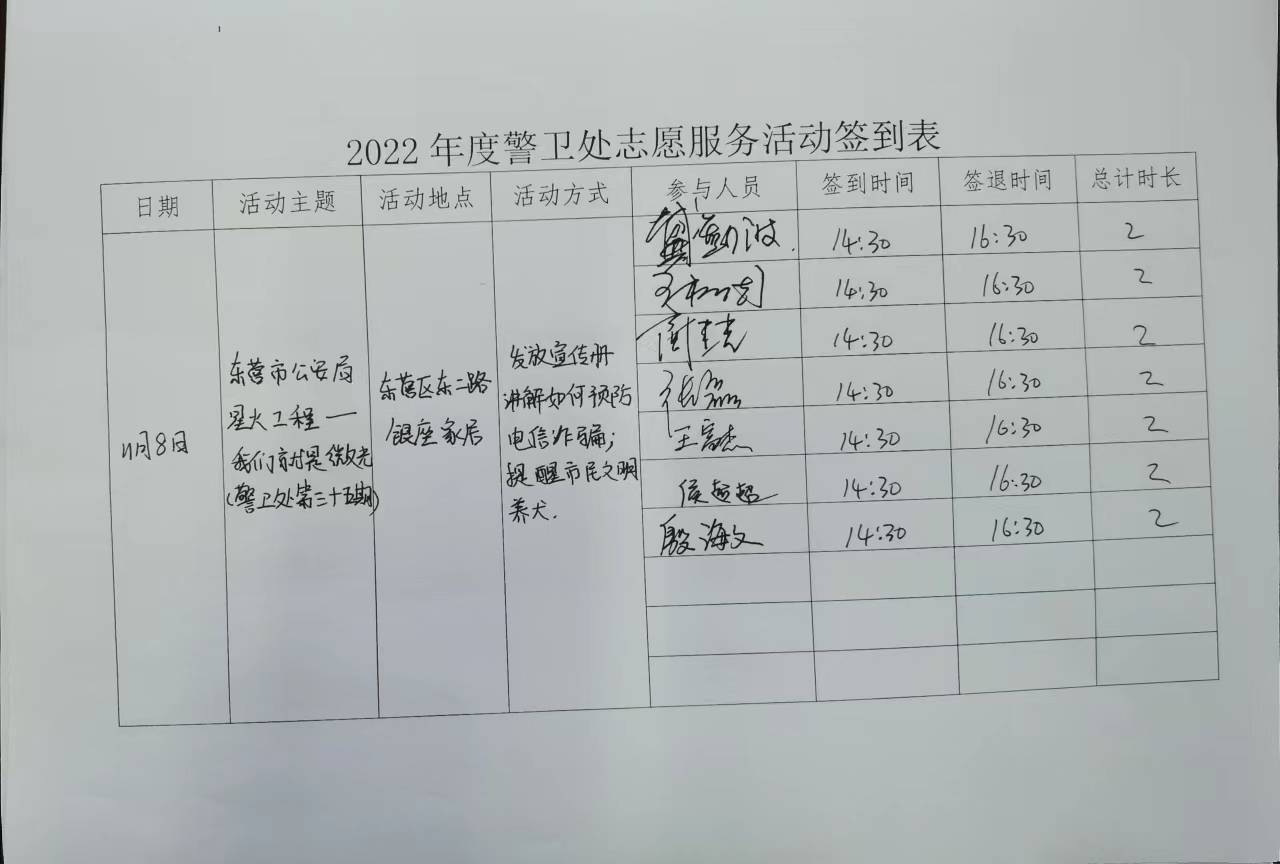 2022 年度警卫处志愿服务活动签到表
日期 活动主题 活动地点 活动方式 参与人员 签到时间 签退时间 总计时长
11月8日
东营市公安局
星火工程一
我们就是微光
(警卫处第三十五期)
东营区东二路
银座家居
发放宣传册
讲解如何预防
电信诈骗;
提醒市民文明
养犬.
勁波. 14:30 16:30 2
14:30 16:30 2
14:30 16:30 2
张磊 14:30 16:30 2
王富杰 14:30 16:30 2
侯超超 14:30 16:30 2
殷海文 14:30 16:30 2